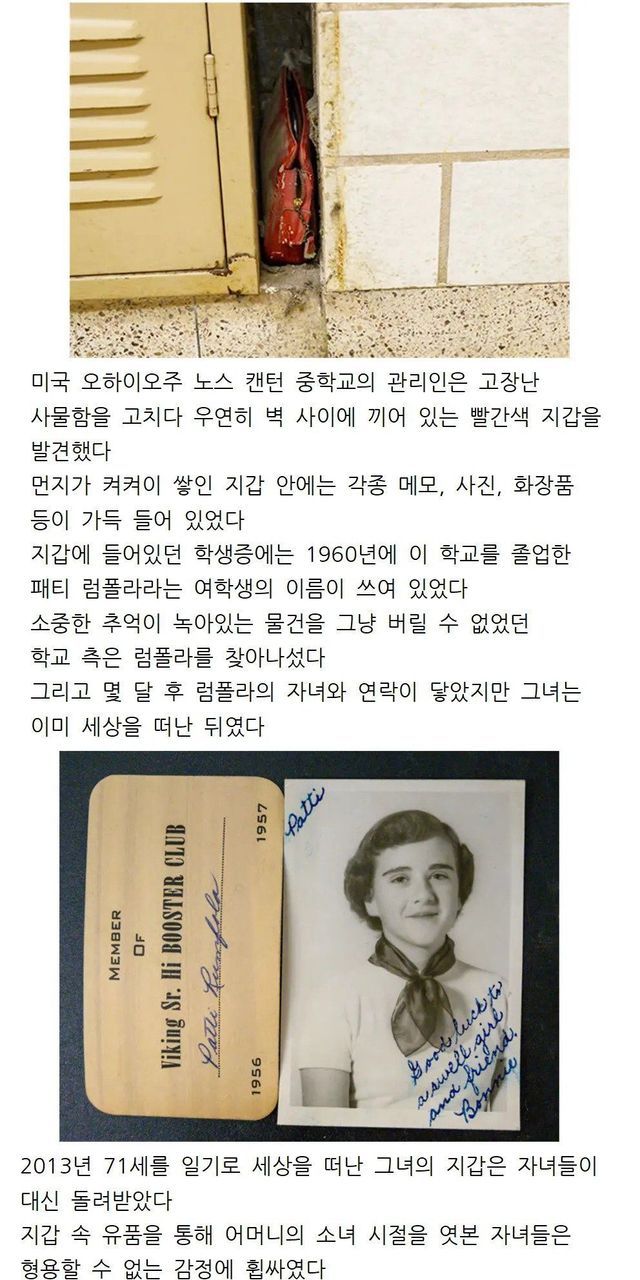 미국 오하이오주 노스 캔턴 중학교의 관리인은 고장난
사물함을 고치다 우연히 벽 사이에 끼어 있는 빨간색 지갑을
발견했다
먼지가 켜켜이 쌓인 지갑 안에는 각종 메모, 사진, 화장품
등이 가득 들어 있었다
지갑에 들어있던 학생증에는 1960년에 이 학교를 졸업한
패티 럼폴라라는 여학생의 이름이 쓰여 있었다
소중한 추억이 녹아있는 물건을 그냥 버릴 수 없었던
학교 측은 럼폴라를 찾아나섰다
그리고 몇 달 후 럼폴라의 자녀와 연락이 닿았지만 그녀는
이미 세상을 떠난 뒤였다
MEMBER
OF
Viking Sr. Hi BOOSTER CLUB
Patti Rumfola
1956 1957
Patti
Good luck to
a swell girl
and friend.
Bonnie
2013년 71세를 일기로 세상을 떠난 그녀의 지갑은 자녀들이
대신 돌려받았다
지갑 속 유품을 통해 어머니의 소녀 시절을 엿본 자녀들은
형용할 수 없는 감정에 휩싸였다